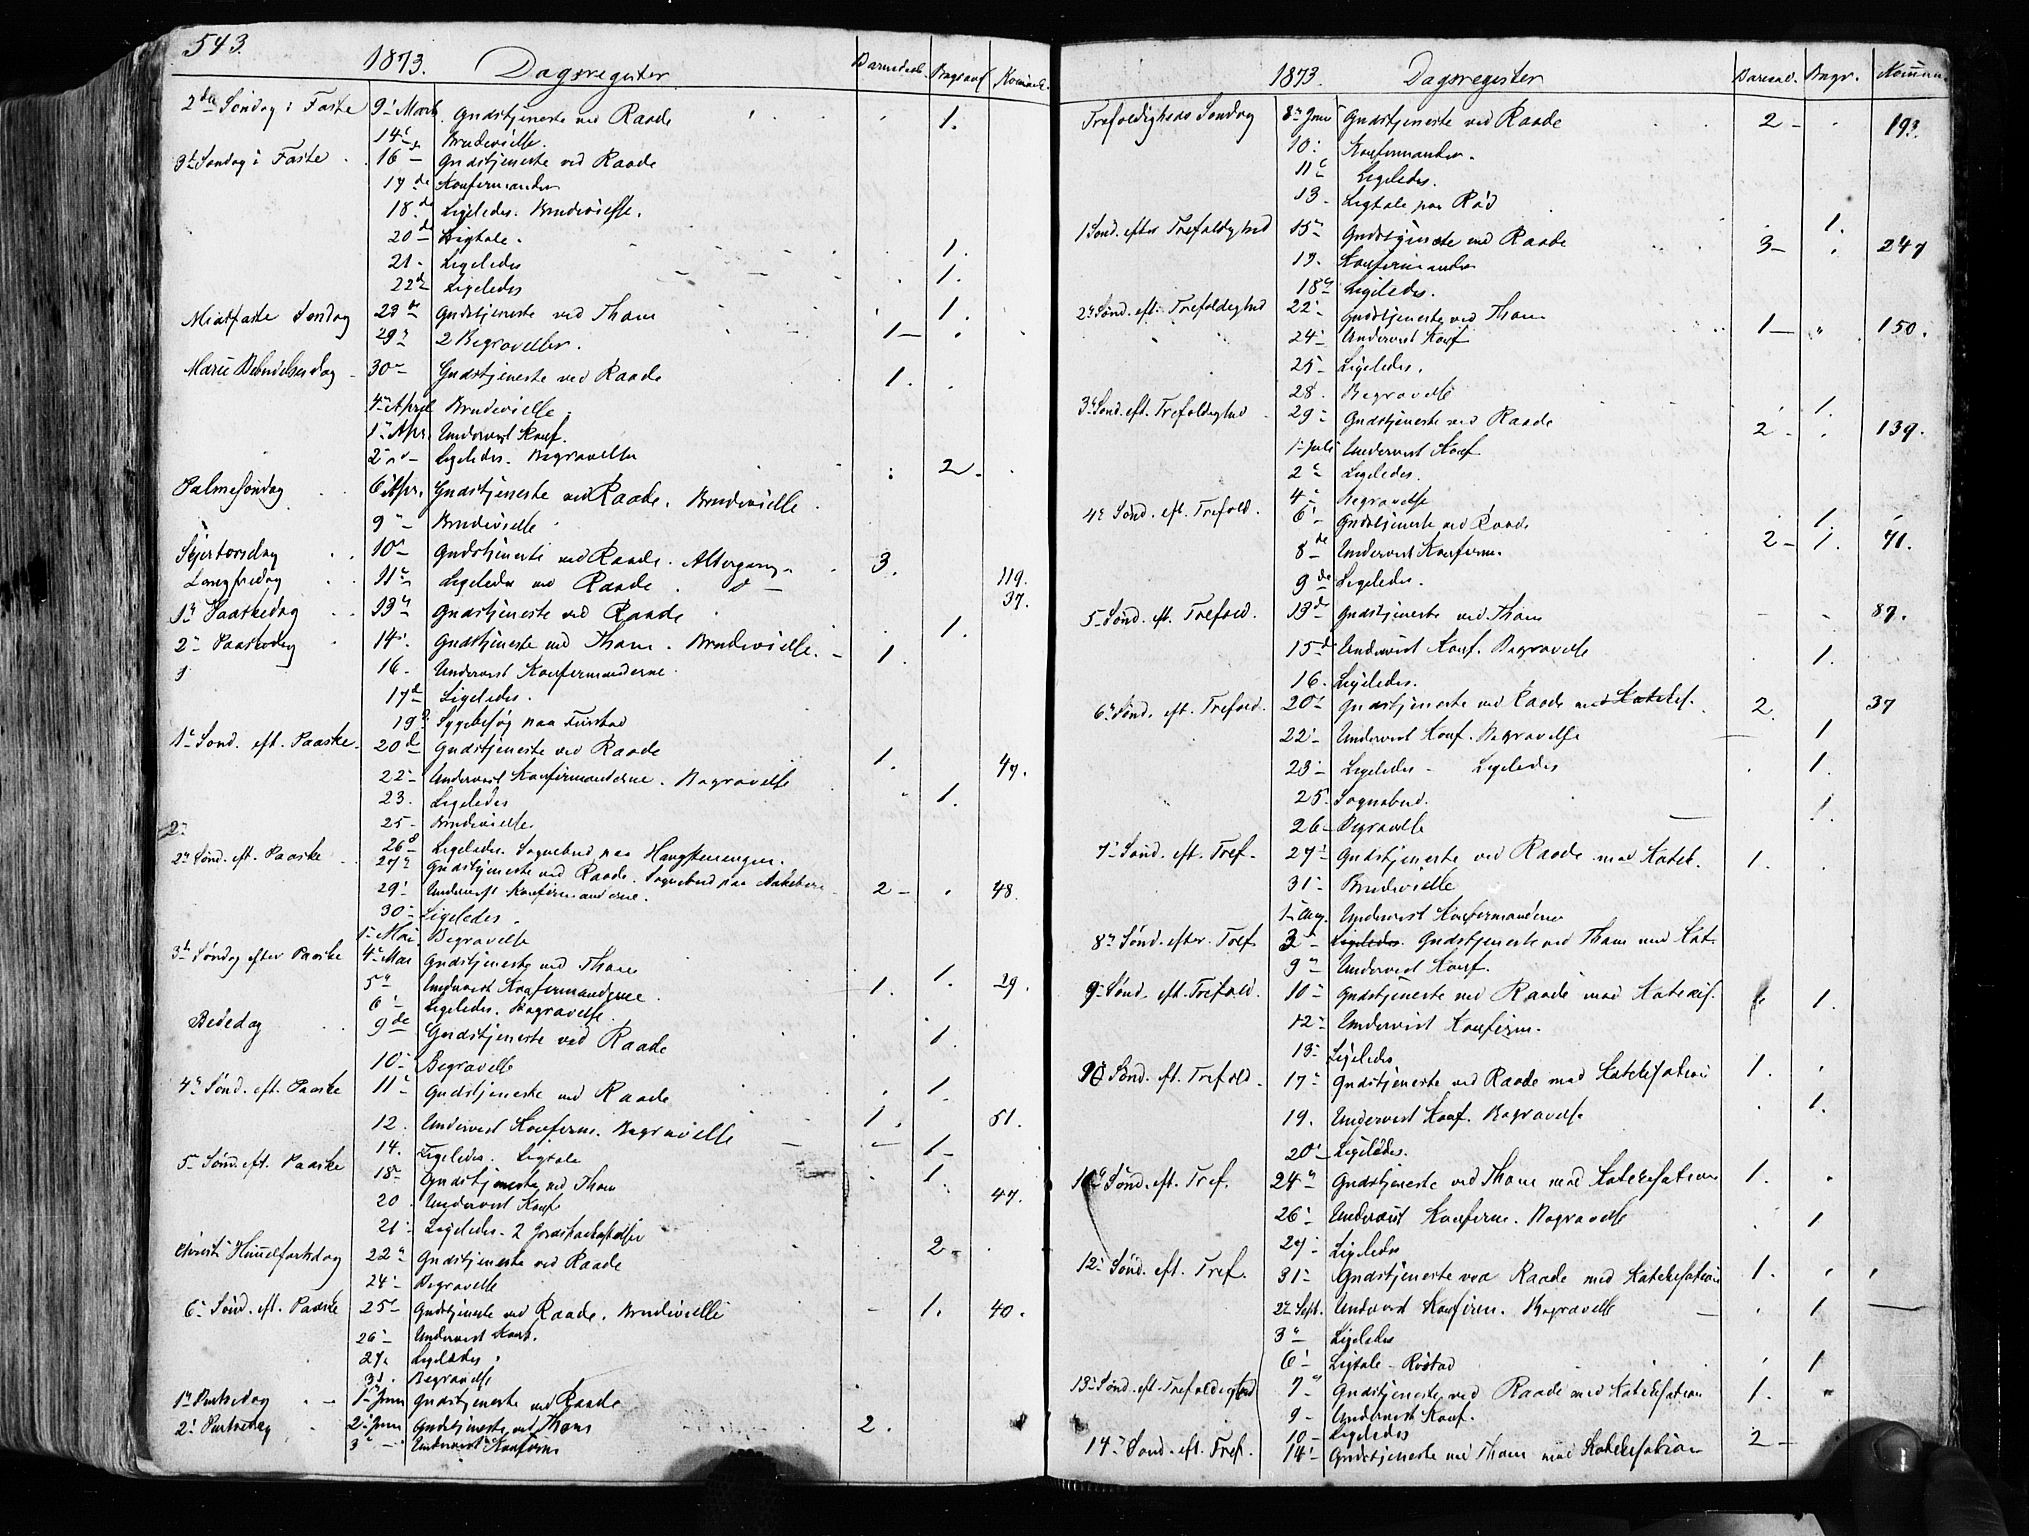 543.
1873. Dagsregister Barnedaab. Begravel. Kommuni.
2den Søndag i Faste 9. Marts Gudstjeneste ved Raade 1.
14de Brudevielse.
3die Søndag i Faste 16 – Gudstjeneste ved Raade
17de Konfirmander
18de Ligeledes. Brudevielse.
20de Ligtale. 1.
21. Ligeledes 1.
22de Ligeledes 1.
Midfaste Søndag 23de Gudstjeneste ved Thom 1 –
29de 2 Begravelser.
Marie Bebudelsesdag 30te Gudstjeneste ved Raade 1.
4de April Brudevielse.
1ste Apr. Undervist Konf.
2den Ligeledes. Begravelse 2 –
Palmesøndag 6 Apr. Gudstjeneste ved Raade. Brudevielse
9de – Brudevielse
Skjertorsdag 10de Gudstjeneste ved Raade. Altergang 3 119.
Langfredag 11te Ligeledes ved Raade do 37.
1ste Paaskedag 13de Gudstjeneste ved Raade 1.
2den Paaskedag 14. Gudstjeneste ved Thom. Brudevielse. – 1.
16. Undervist Konfirmanderne.
17de Ligeledes.
19de Sygebesøg paa Fuststad
1ste Sønd. eft. Paaske. 20de Gudstjeneste ved Raade 1. 47.
22 – Undervist Konfirmanderne. Begravelse 1.
23. Ligeledes
25 – Brudevielse.
2den Sønd. eft. Paaske 26de Ligeledes. Sognebud paa Haugstenengen.
27de Gudstjeneste ved Raade. Sognebud paa Aakeberg 2 – 48.
29. Undervist Konfirmanderne.
30 – Ligeledes.
1ste Mai Begravelse
3die Søndag efter Paaske 4de Mai Gudstjeneste ved Thom 1. 1. 29.
5te Undervist Konfirmanderne
6 – Ligeledes. Begravelse 1.
Bededag 9de Gudstjeneste ved Raade
10 – Begravelse 1.
4de Sønd. eft. Paaske 11te Gudstjeneste ved Raade 1. 51.
12. Undervist Konfirm. Begravelse 1 –
14. Ligeledes. Ligtale 1.
5te Sønd. eft. Paaske 18de Gudstjeneste ved Thom 47.
20 Undervist Konf.
21. Ligeledes – 2 Jordpaakastelser 2 –
Christi Himmelfartsdag 22de Gudstjeneste ved Raade
24 – Begravelse 1.
6te Sønd. eft. Paaske 25de Gudstjeneste ved Raade. Brudevielse 40.
26 – Undervist Konf.
27. Ligeledes.
31. Begravelse
1ste Pintsedag 1ste Juni Gudstjeneste ved Raade
2. Pintsedag 2 – Juni Gudstjeneste ved Thom 2.
3 – Undervist Konfirm
1873. Dagsregister Barnedaab. Begr. Kommun.
Trefoldigheds Søndag 8de Juni Gudstjeneste ved Raade 2 – 193.
10. Konfirmander.
11te Ligeledes.
13 – Ligtale paa Rød 1.
1 Sønd. efter Trefoldighed 15de Gudstjeneste ved Raade 3 – 247
17. Konfirmander
18de Ligeledes.
2den Sønd. eft. Trefoldighed 22. Gudstjeneste ved Thom 1 – 150.
24 – Undervist Konf
25 – Ligeledes.
28. Begravelse 1.
3die Sønd. eft. Trefoldighed 29 – Gudstjeneste ved Raade 2 – 139.
1. Juli Undervist Konf.
2 – Ligeledes.
4 – Begravelse 1.
4de Sønd. eft. Trefold. 6 – Gudstjeneste ved Raade 2 – 1. 71.
8de Undervist Konfirm.
9de Ligeledes.
5 – Sønd. eft. Trefold. 13de Gudstjeneste ved Thom 87.
15de Undervist Konf. Begravelse 1.
16. Ligeledes.
6te Sønd. eft. Trefold. 20de Gudstjeneste ved Raade med Katekes. 2. 37
22 – Undervist Konf. Begravelse 1
23 – Ligeledes – Ligeledes 1.
25. Sognebud.
26 – Begravelse 1.
7. Sønd. eft. Tref. 27. Gudstjeneste ved Raade med Katek. 1.
31 – Brudevielse
1. Aug. Undervist Konfirmanderne
8de Sønd. efter Tref. 3 – Ligeledes. Gudstjeneste ved Thom med Kat.
9de Undervist Konf.
9 – Sønd. eft. Trefold. 10 – Gudstjeneste ved Raade med Katekes. 1.
12 – Undervist Konfirm.
13 – Ligeledes
10 Sønd. eft. Trefold. 17 – Gudstjeneste ved Raade med Katekesation 1.
19. Undervist Konf. Begravelse 1.
20 – Ligeledes.
Sønd. eft. Tref. 24de Gudstjeneste ved Thom med Katekesation 1.
26 – Undervist Konfirm. Begravelse 1
27 – Ligeledes
12. Sønd. eft. Tref. 31 – Gudstjeneste ved Raade med Katekesation 1.
2den Sept. Undervist Konfirm. Begravelse 1
3de Ligeledes
6 – Ligtale – Røstad 1
13. Sønd. eft. Trefoldighed 7de Gudstjeneste ved Raade med Katekesation 1.
9 – Undervist Konf.
10 – Ligeledes
14. Sønd. eft. Tref. 14 – Gudstjeneste ved Thom med Katekesation 2 –